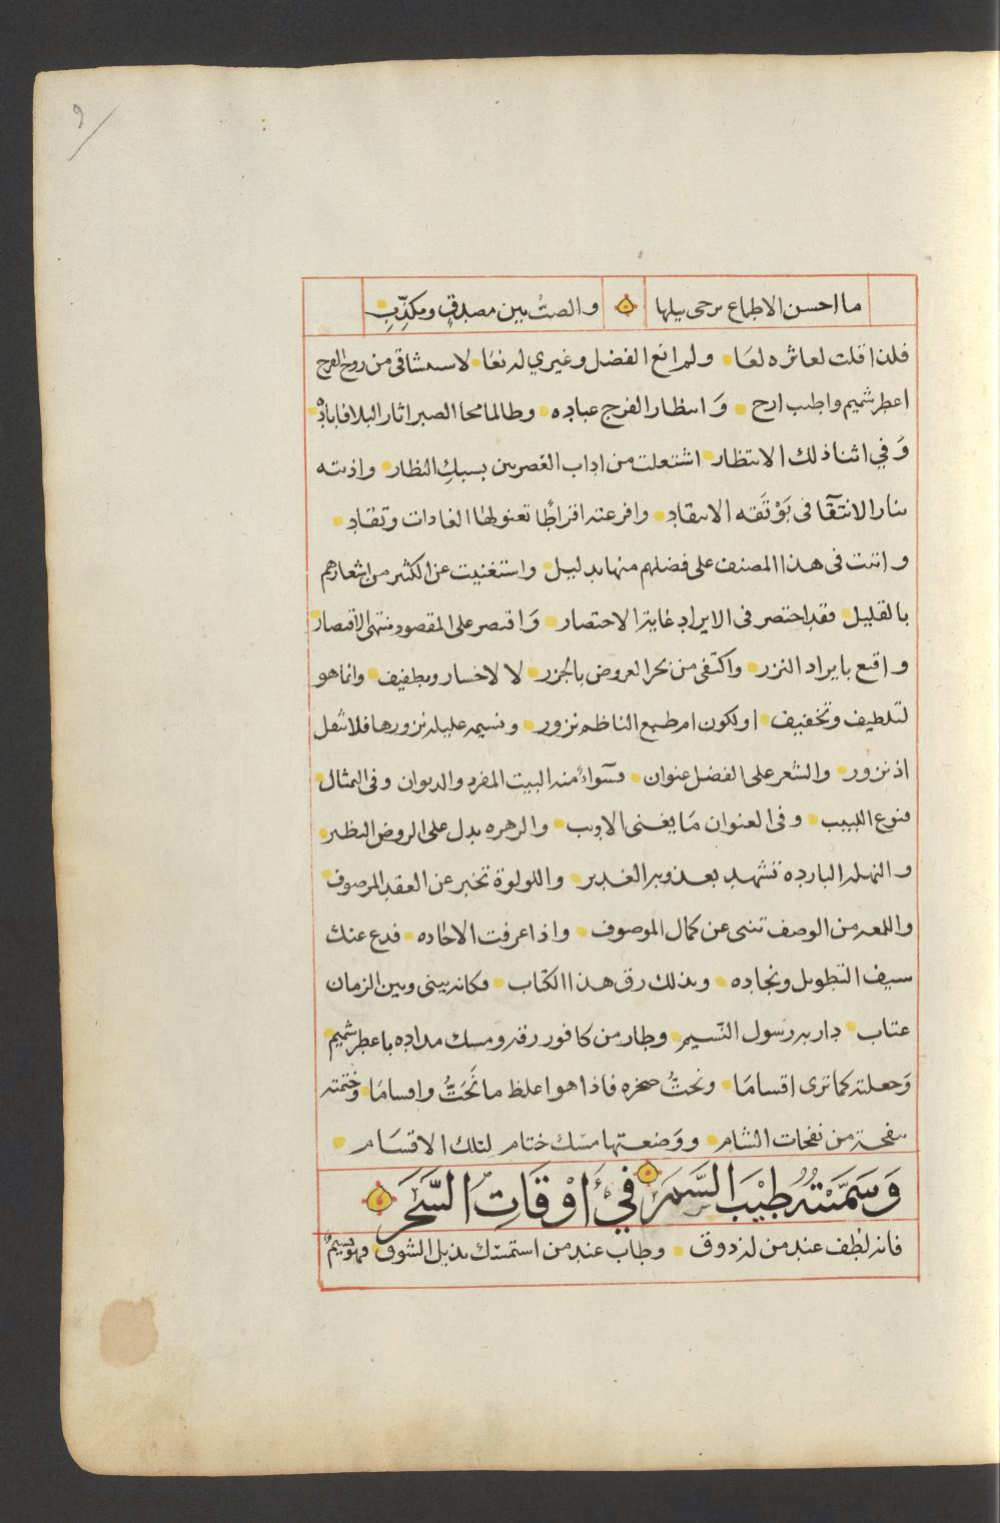 9
ما احسن الاطماع يرجى نيلها والصبّ بين مصدقٍ ومكذّبِ
فلذا قلت لعاثره لعَا ولم انع الفضل وغيري له نعَا لاستنشاقى من روح الفرج
اعطر شميم واطيب ارج وَانتظار الفرج عباده وطالما محا الصبر اثار البلا فاباده
وَفي اثنا ذلك الانتظار اشتعلت من اداب العصريين بسبكِ النظار واذبته
بنار الانتقَا فى بَوْتَقه الانتقاد وافرغته اقراطًا تعنو لها الغادات وتنقاد
واتيت فى هذا المصنف على فضلهم منها بدليل واستغنيت عن الكثير من اشعارهم
بالقليل فقد اختصر فى الايراد غاية الاختصار وَاقتصر على المقصود منتهى الاقتصار
واقنع بايراد النزر واكتفى من بحر العروض بالجزر لا لاخسار وتطفيف وانما هو
لتلطيف وتخفيف او لكون ام طبع الناظم نزور ونسيمه عليله نزورها فلا تثقل
اذ نزور والشعر على الفضل عنوان فسَواء منه البيت المفرد والديوان وفى المثال
قنوع اللبيب وفى العنوان مَا يغنى الاديب والزهره تدل على الروض النظير
والنهله البارده تشهد بعذوبة الغدير واللولوة تخبر عن العقد المرصوف
واللمعه من الوصف تنبى عن كمال الموصوف واذا عرفت الاجاده فدع عنك
سيف التطويل ونجاده وبذلك رق هذا الكتاب فكانه بينى وبين الزمان
عتاب دار به رسول النّسيم وطار من كافور رقه ومسك مداده باعطر شميم
وَجعلته كما ترى اقسامَا ونحتُّ صخره فاذا هو اغلظ ما نَحَتُّ واقسامَا وختمته
بنفحة من نفحات الشام ووَضعتها مسك ختام لتلك الاقسَام
وَسَمَّيْتُه طِيْبَ السَّمَرَ فيْ اوْقَاتِ السَّحَر
فانه لطف عند من له ذوق وطاب عند من استمسك بذيل الشوق فهو نسيمٌ